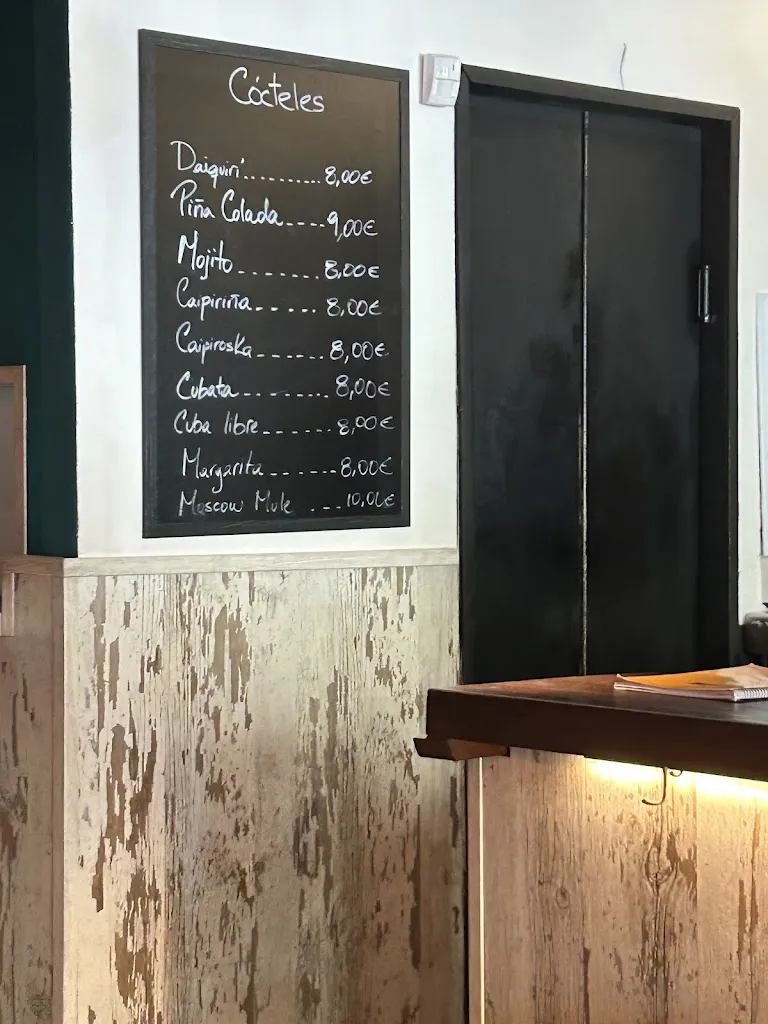 Cócteles
Daiquirí.......... 8,00€
Piña Colada.... 9,00€
Mojito....... 8,00€
Caipiriña..... 8,00€
Caipiroska...... 8,00€
Cubata........ 8,00€
Cuba libre...... 8,00€
Margarita...... 8,00€
Moscow Mule ... 10,00€